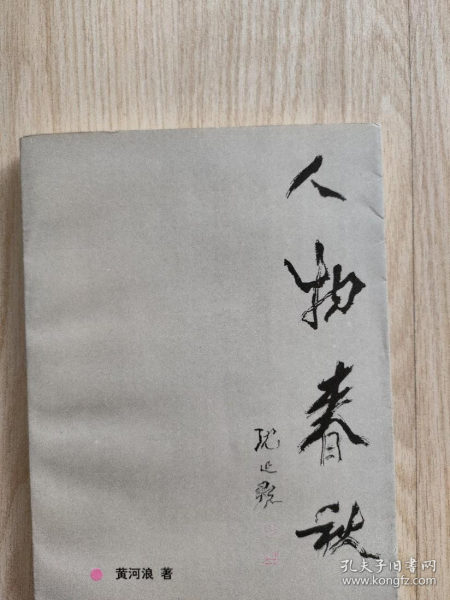 人物春秋
黄河浪 著
孔夫子旧书网
www.kongfz.com